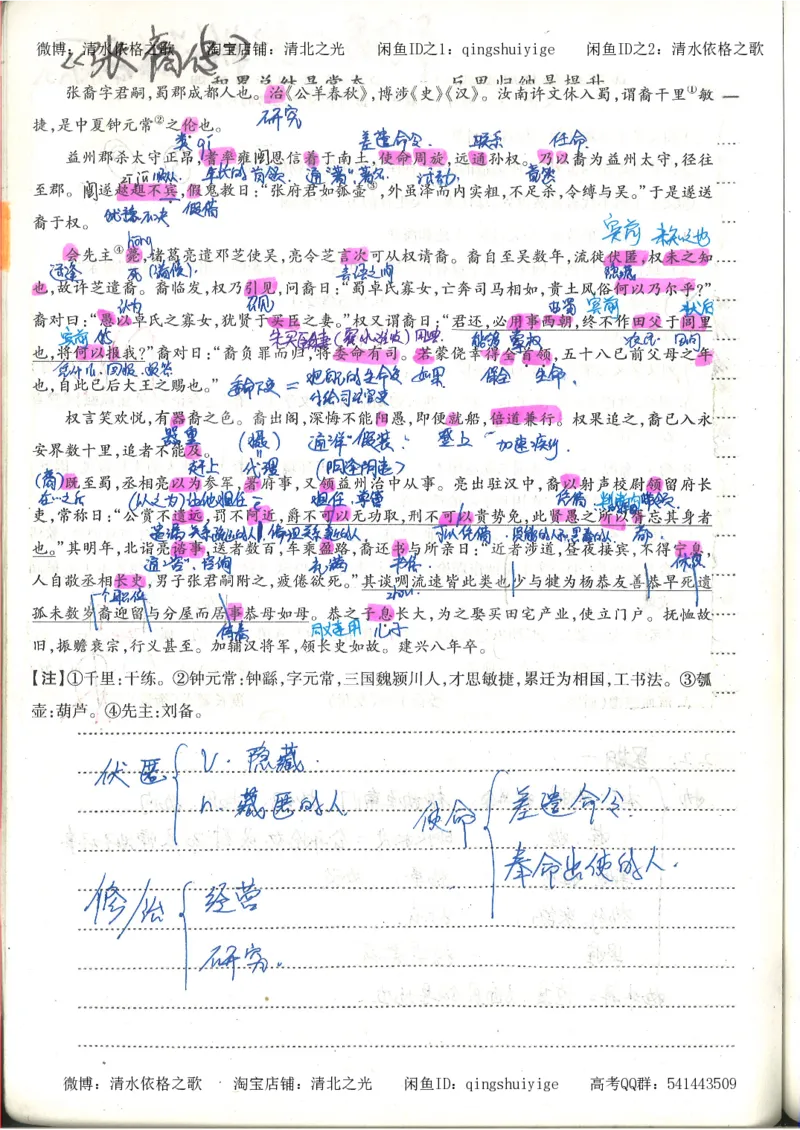 微博：清水依格之歌 淘宝店铺：清北之光 闲鱼ID之1：qingshuiyige 闲鱼ID之2：清水依格之歌
《张裔传》
积累总结是常态 反思归纳是提升
张裔字君嗣,蜀郡成都人也。治《公羊春秋》,博涉《史》《汉》。汝南许文休入蜀,谓裔干里①敏
研究
捷,是中夏钟元常②之伦也。
类 差遣命令 联系 任命
益州郡杀太守正昂,耆率雍闿恩信着于南土,使命周旋,远通孙权。乃以裔为益州太守,径往
至郡。闿遂趑趄不宾,假鬼教曰:“张府君如瓠壶③,外虽泽而内实粗,不足杀,令缚与吴。”于是遂送
犹豫不决 假借
裔于权。
宾前
会先主④薨,诸葛亮遣邓芝使吴,亮令芝言次可从权请裔。裔自至吴数年,流徙伏匿,权未之知
适逢 死 言语之间 隐匿
也,故许芝遣裔。裔临发,权乃引见,问裔曰:“蜀卓氏寡女,亡奔司马相如,贵土风俗何以乃尔乎?”
认为 召见 宾前 状后
裔对曰:“愚以卓氏之寡女,犹贤于买臣之妻。”权又谓裔曰:“君还,必用事西朝,终不作田父于闾里
宾前 农民 田间
也,将何以报我?”裔对曰:“裔负罪而归,将委命有司。若蒙侥幸得全首领,五十八已前父母之年
如果 保全 生命
也,自此已后大王之赐也。”
权言笑欢悦,有器裔之色。裔出阁,深悔不能阳愚,即便就船,倍道兼行。权果追之,裔已入永
器重 (摄) 通“佯”假装 登上 加速疾行
安界数十里,追者不能及。
赶上 代理
(裔)既至蜀,丞相亮以为参军,署府事,又领益州治中从事。亮出驻汉中,裔以射声校尉领留府长
在…之后 (以之为)让他担任 担任
吏,常称曰:“公赏不遗远,罚不阿近,爵不可以无功取,刑不可以贵势免,此贤愚之所以佥忘其身者
也。”其明年,北诣亮谘事,送者数百,车乘盈路,裔还书与所亲曰:“近者涉道,昼夜接宾,不得宁息,
充满 书信 休息
人自敬丞相长史,男子张君嗣附之,疲倦欲死。”其谈啁流速皆此类也少与犍为杨恭友善恭早死遗
zhou
孤未数岁裔迎留与分屋而居事恭母如母。恭之子息长大,为之娶买田宅产业,使立门户。抚恤故
侍奉 同义连用 儿子
旧,振赡衰宗,行义甚至。加辅汉将军,领长史如故。建兴八年卒。
【注】①干里:干练。②钟元常:钟繇,字元常,三国魏颍川人,才思敏捷,累迁为相国,工书法。③瓠
壶:葫芦。④先主:刘备。
伏匿 v. 隐藏.
n. 藏匿的人
使命 差遣命令
奉命出使的人.
修治 经营
研究.
微博：清水依格之歌 淘宝店铺：清北之光 闲鱼ID：qingshuiyige 高考QQ群：541443509